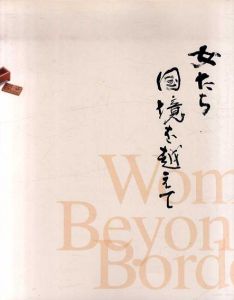 女たち
国境を越えて
Wom
Beyon
Borde